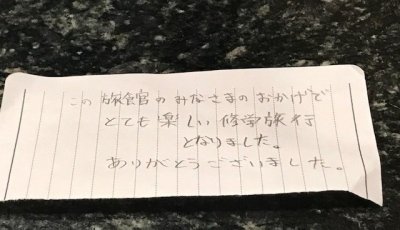 この旅館官のみなさまのおかげで
とても楽しい修学旅行
となりました。
ありがとうございました。